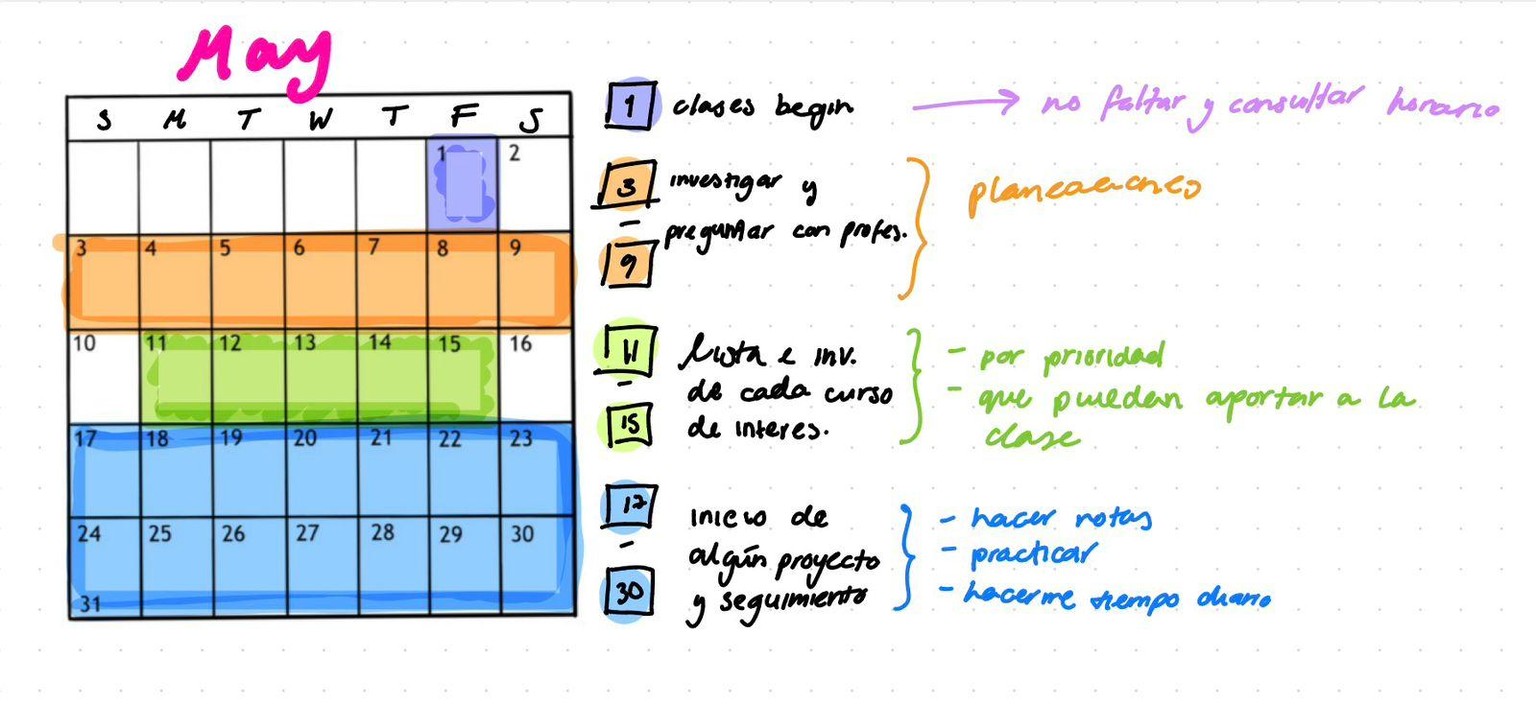 May
S M T W T F S
1 2
3 4 5 6 7 8 9
10 11 12 13 14 15 16
17 18 19 20 21 22 23
24 25 26 27 28 29 30
31
1 clases begin → no faltar y consultar horario
3 - 9 investigar y
preguntar con profes.
planeaciones
11 - 15 lista e inv.
de cada curso
de interes.
- por prioridad
- que puedan aportar a la
clase
17 - 30 inicio de
algún proyecto
y seguimiento
- hacer notas
- practicar
- hacerme tiempo diario